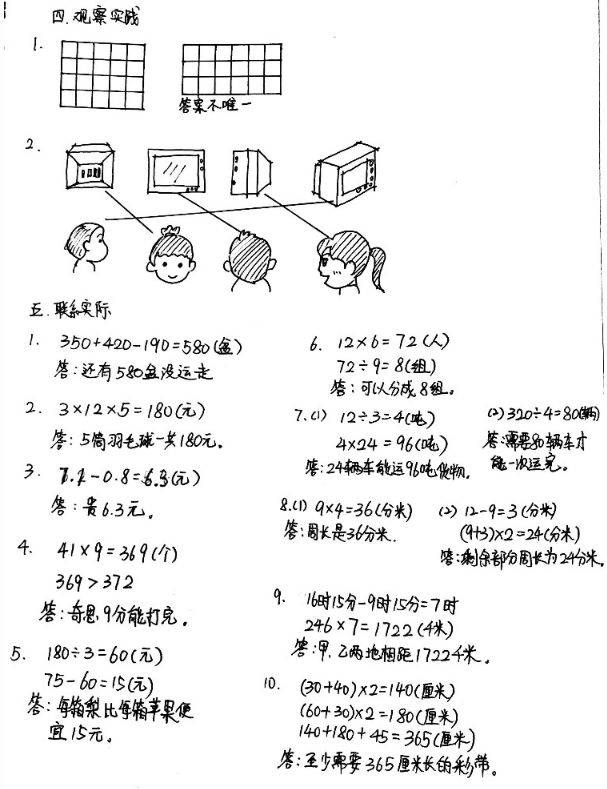 四.观察实践
1.
答案不唯一
2.
五.联系实际
1. 350+420-190=580(盆)
答:还有580盆没运走
2. 3×12×5=180(元)
答:5筒羽毛球一共180元。
3. 7.1-0.8=6.3(元)
答:贵6.3元。
4. 41×9=369(个)
369>372
答:奇思9分能打完。
5. 180÷3=60(元)
75-60=15(元)
答:每箱梨比每箱苹果便
宜15元。
6. 12×6=72(人)
72÷9=8(组)
答:可以分成8组。
7.(1) 12÷3=4(吨)
4×24=96(吨)
答:24辆车能运96吨货物。
(2)320÷4=80(辆)
答:需要80辆车才
能一次运完。
8.(1) 9×4=36(分米)
答:周长是36分米.
(2) 12-9=3(分米)
(9+3)×2=24(分米)
答:剩余部分周长为24分米。
9. 16时15分-9时15分=7时
246×7=1722(千米)
答:甲、乙两地相距1722千米。
10. (30+40)×2=140(厘米)
(60+30)×2=180(厘米)
140+180+45=365(厘米)
答:至少需要365厘米长的彩带。